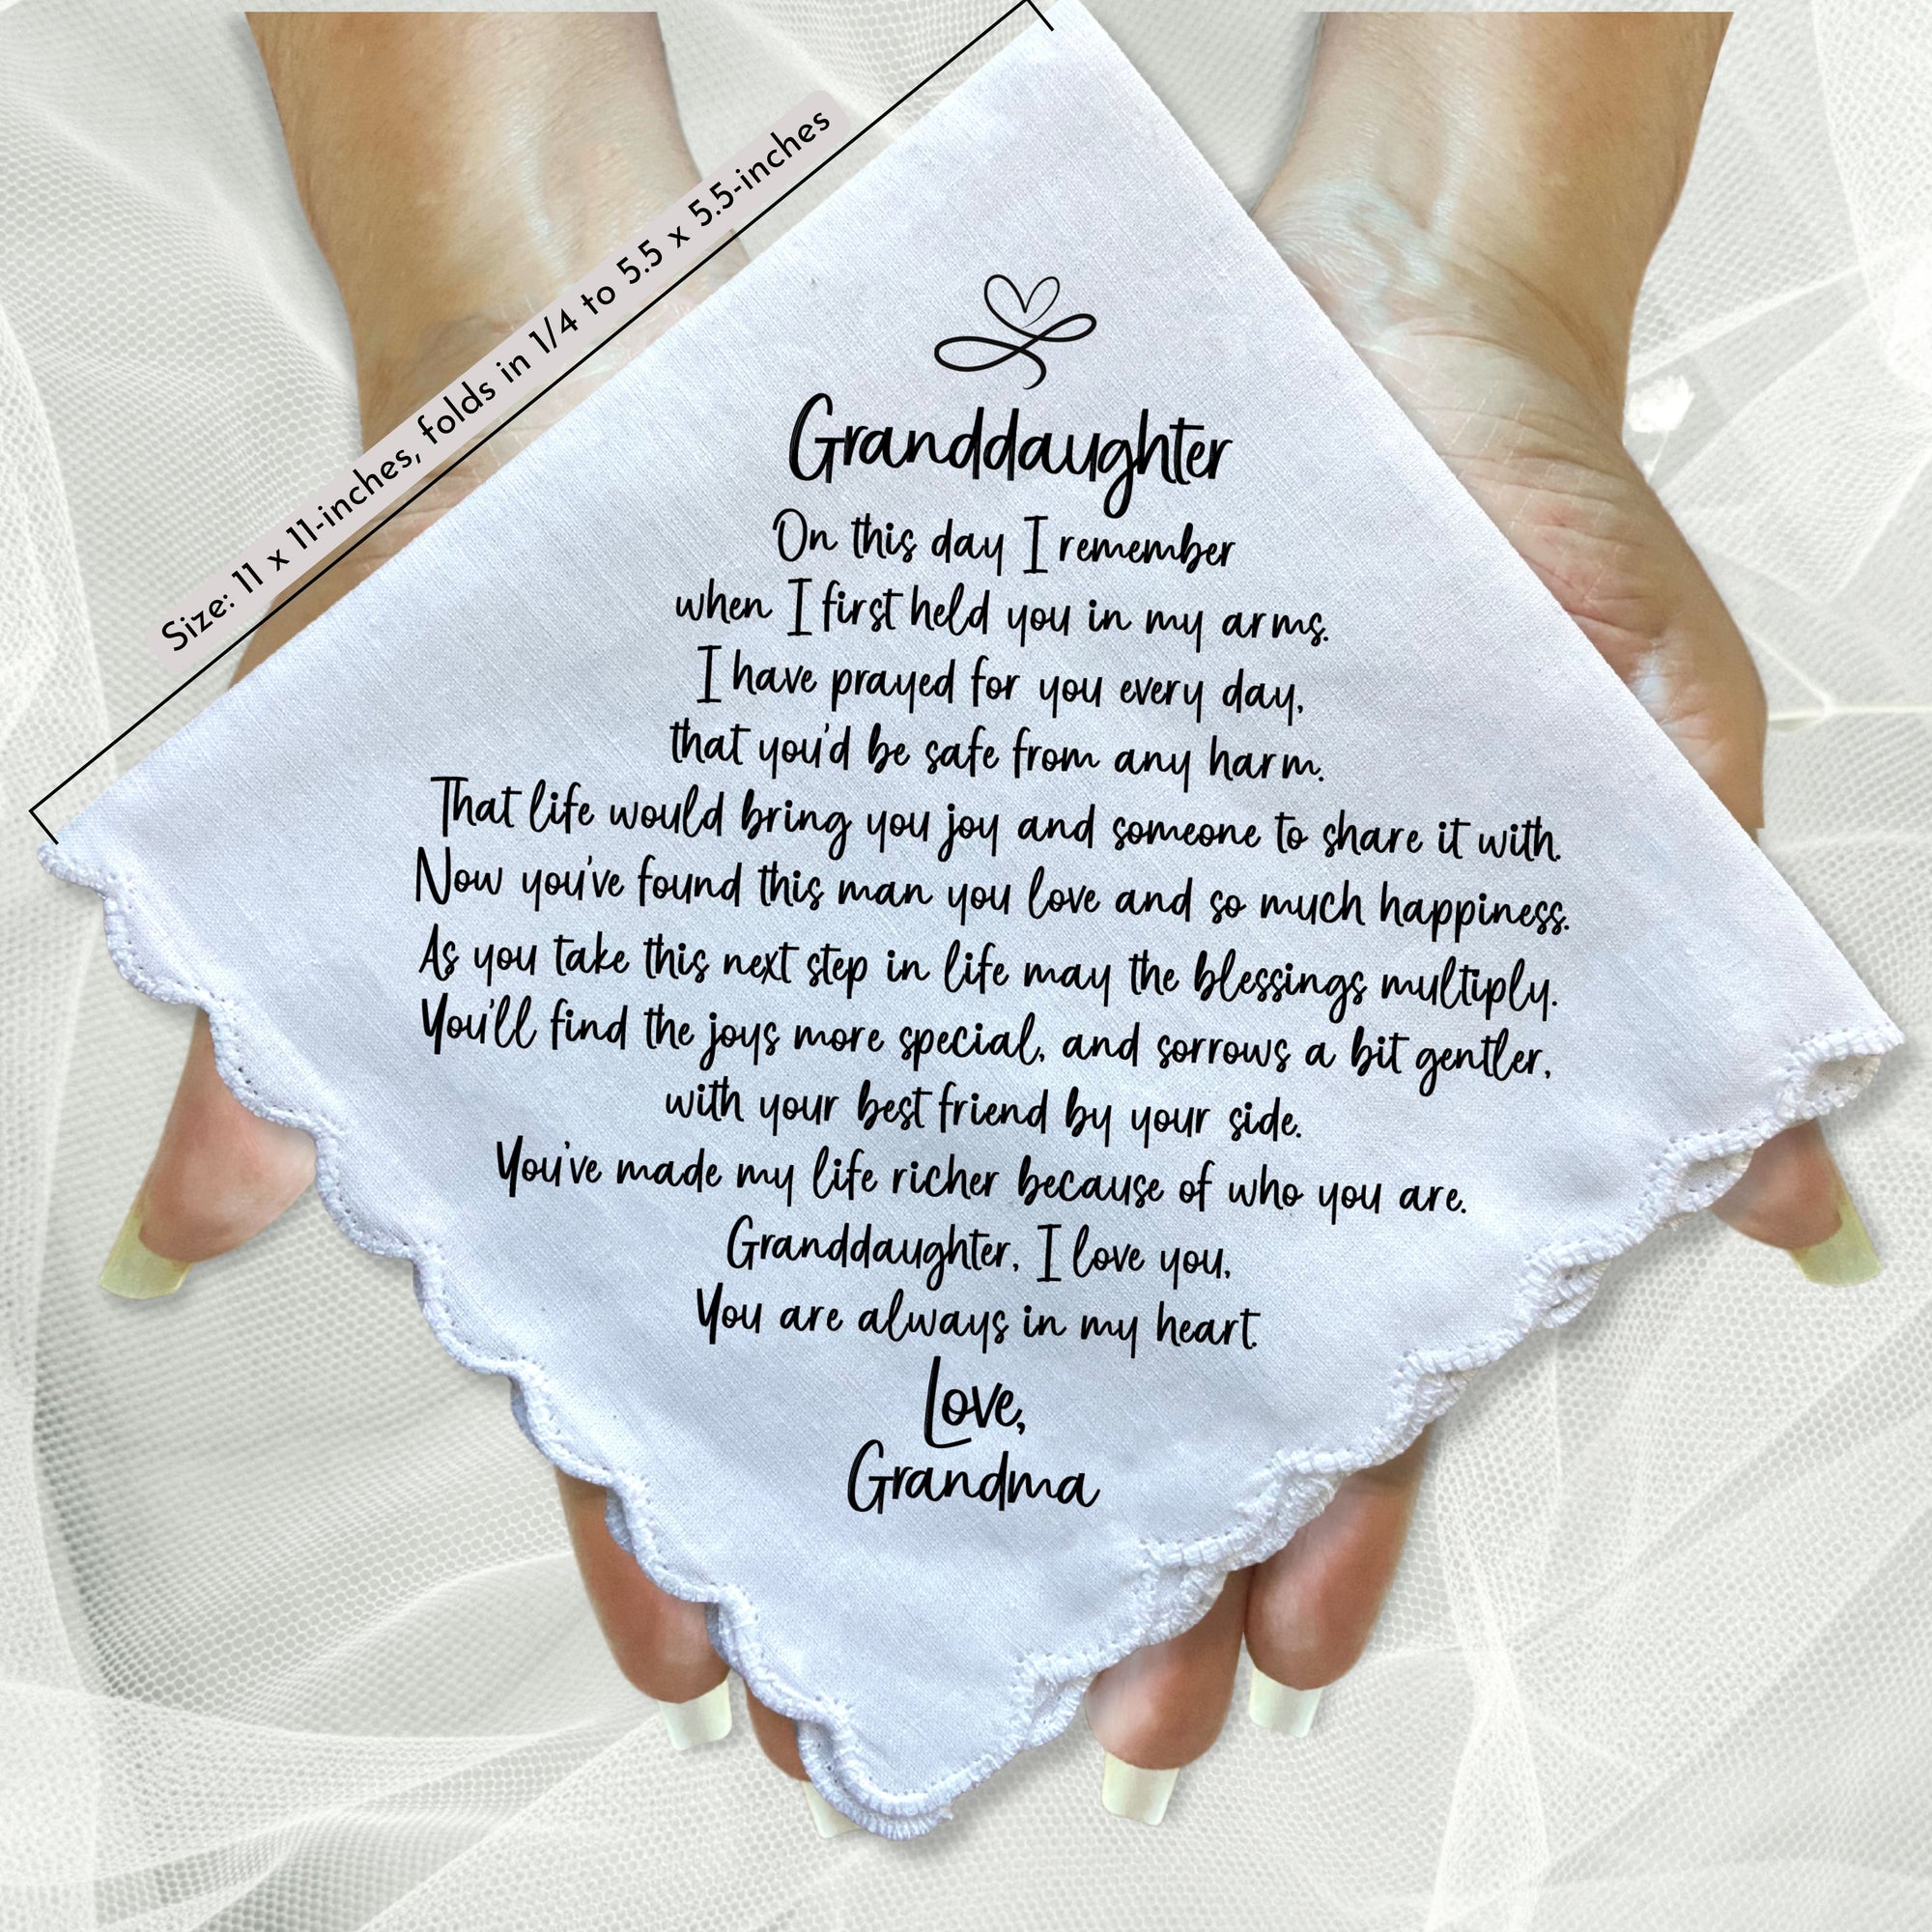 Size: 11 x 11-inches, folds in 1/4 to 5.5 x 5.5-inches
Granddaughter
On this day I remember
when I first held you in my arms.
I have prayed for you every day,
that you'd be safe from any harm.
That life would bring you joy and someone to share it with.
Now you've found this man you love and so much happiness.
As you take this next step in life may the blessings multiply.
You'll find the joys more special, and sorrows a bit gentler,
with your best friend by your side.
You've made my life richer because of who you are.
Granddaughter, I love you,
You are always in my heart.
Love,
Grandma